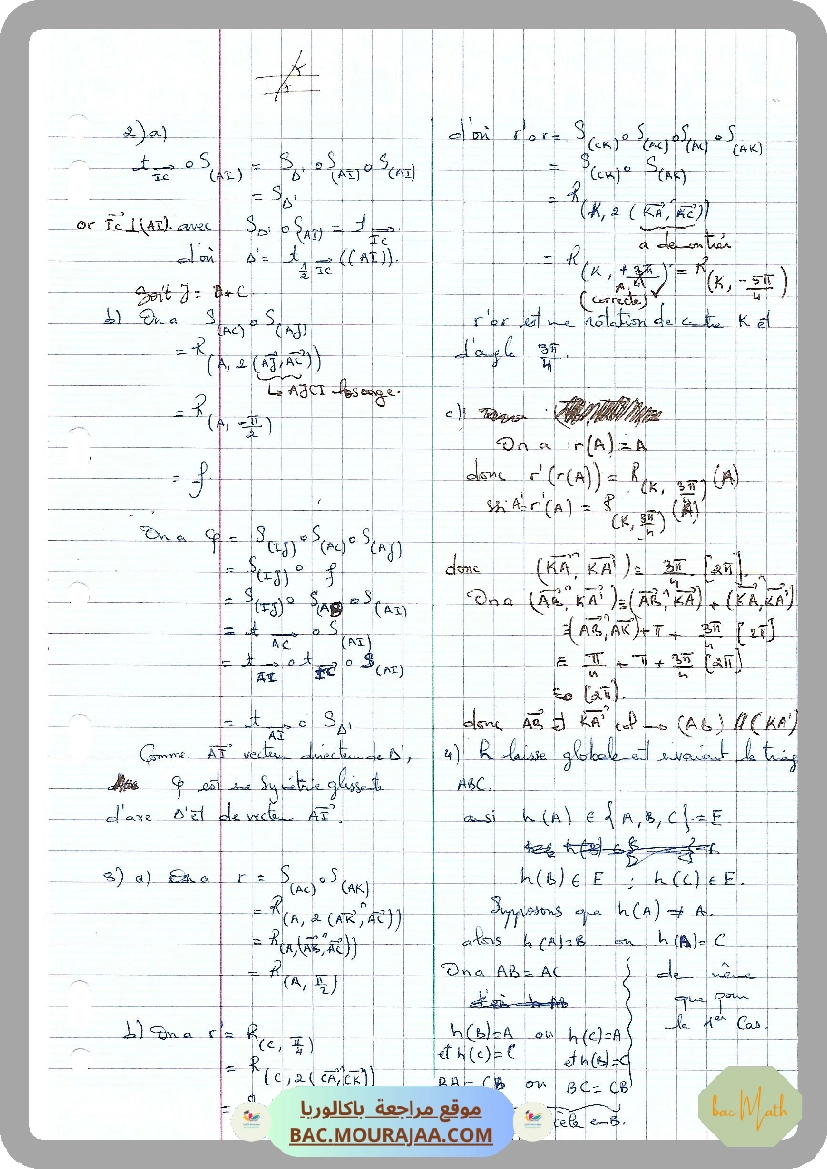 2) a)
t_{\vec{IC}} o S_{(AI)} = S_{Δ'} o S_{(AI)} o S_{(AI)}
= S_{Δ'}
or \vec{IC} ⊥ (AI) avec S_{Δ'} o S_{(AI)} = t_{\vec{IC}}
d'où Δ' = t_{\frac{1}{2}\vec{IC}}((AI)).
Soit J = B*C
b) On a S_{(AC)} o S_{(AJ)}
= R_{(A, 2(\vec{AJ}, \vec{AC}))}
↳ AJCI losange.
= R_{(A, -\frac{π}{2})}
= f
On a φ = S_{(IJ)} o S_{(AC)} o S_{(AJ)}
= S_{(IJ)} o f
= S_{(IJ)} o S o S_{(AI)}
= t_{\vec{AC}} o S_{(AI)}
= t_{\vec{AI}} o t_{\vec{IC}} o S_{(AI)}
= t_{\vec{AI}} o S_{Δ'}
Comme \vec{AI} vecteur directeur de Δ',
φ est une symétrie glissante
d'axe Δ' et de vecteur \vec{AI}.
3) a) On a r = S_{(AC)} o S_{(AK)}
= R_{(A, 2(\vec{AK}, \vec{AC}))}
= R_{(A, (\vec{AB}, \vec{AC}))}
= R_{(A, \frac{π}{2})}
b) On a r' = R_{(C, \frac{π}{4})}
= R_{(C, 2(\vec{CA}, \vec{CK}))}
d'où r'or = S_{(CK)} o S_{(AC)} o S_{(AC)} o S_{(AK)}
= S_{(CK)} o S_{(AK)}
= R_{(K, 2(\vec{KA}, \vec{KC}))}
à démontrer
= R_{(K, +\frac{3π}{4})} = R_{(K, -\frac{5π}{4})}
(correcte)
r'or est une rotation de centre K et
d'angle \frac{3π}{4}.
c)
On a r(A) = A
donc r'(r(A)) = R_{(K, \frac{3π}{4})}(A)
A' = r'(A) = R_{(K, \frac{3π}{4})}(A)
donc (\vec{KA}, \vec{KA'}) ≡ \frac{3π}{4} [2π].
On a (\vec{AB}, \vec{KA'}) ≡ (\vec{AB}, \vec{KA}) + (\vec{KA}, \vec{KA'})
≡ (\vec{AB}, \vec{AK}) + π + \frac{3π}{4} [2π]
≡ \frac{π}{4} + π + \frac{3π}{4} [2π]
≡ 0 [2π].
donc \vec{AB} et \vec{KA'} → (AB) // (KA')
4) h laisse globalement invariant le triag
ABC.
ansi h(A) ∈ {A, B, C} = E
h(B) ∈ E ; h(C) ∈ E.
Supposons que h(A) ≠ A.
alors h(A)=B ou h(A) = C
On a AB = AC
de même
que pour
le 1er Cas.
h(B)=A ou h(C)=A
et h(C)=C et h(B)=C
BA = CB ou BC = CB
en B.
موقع مراجعة باكالوريا
BAC.MOURAJAA.COM
bac Math